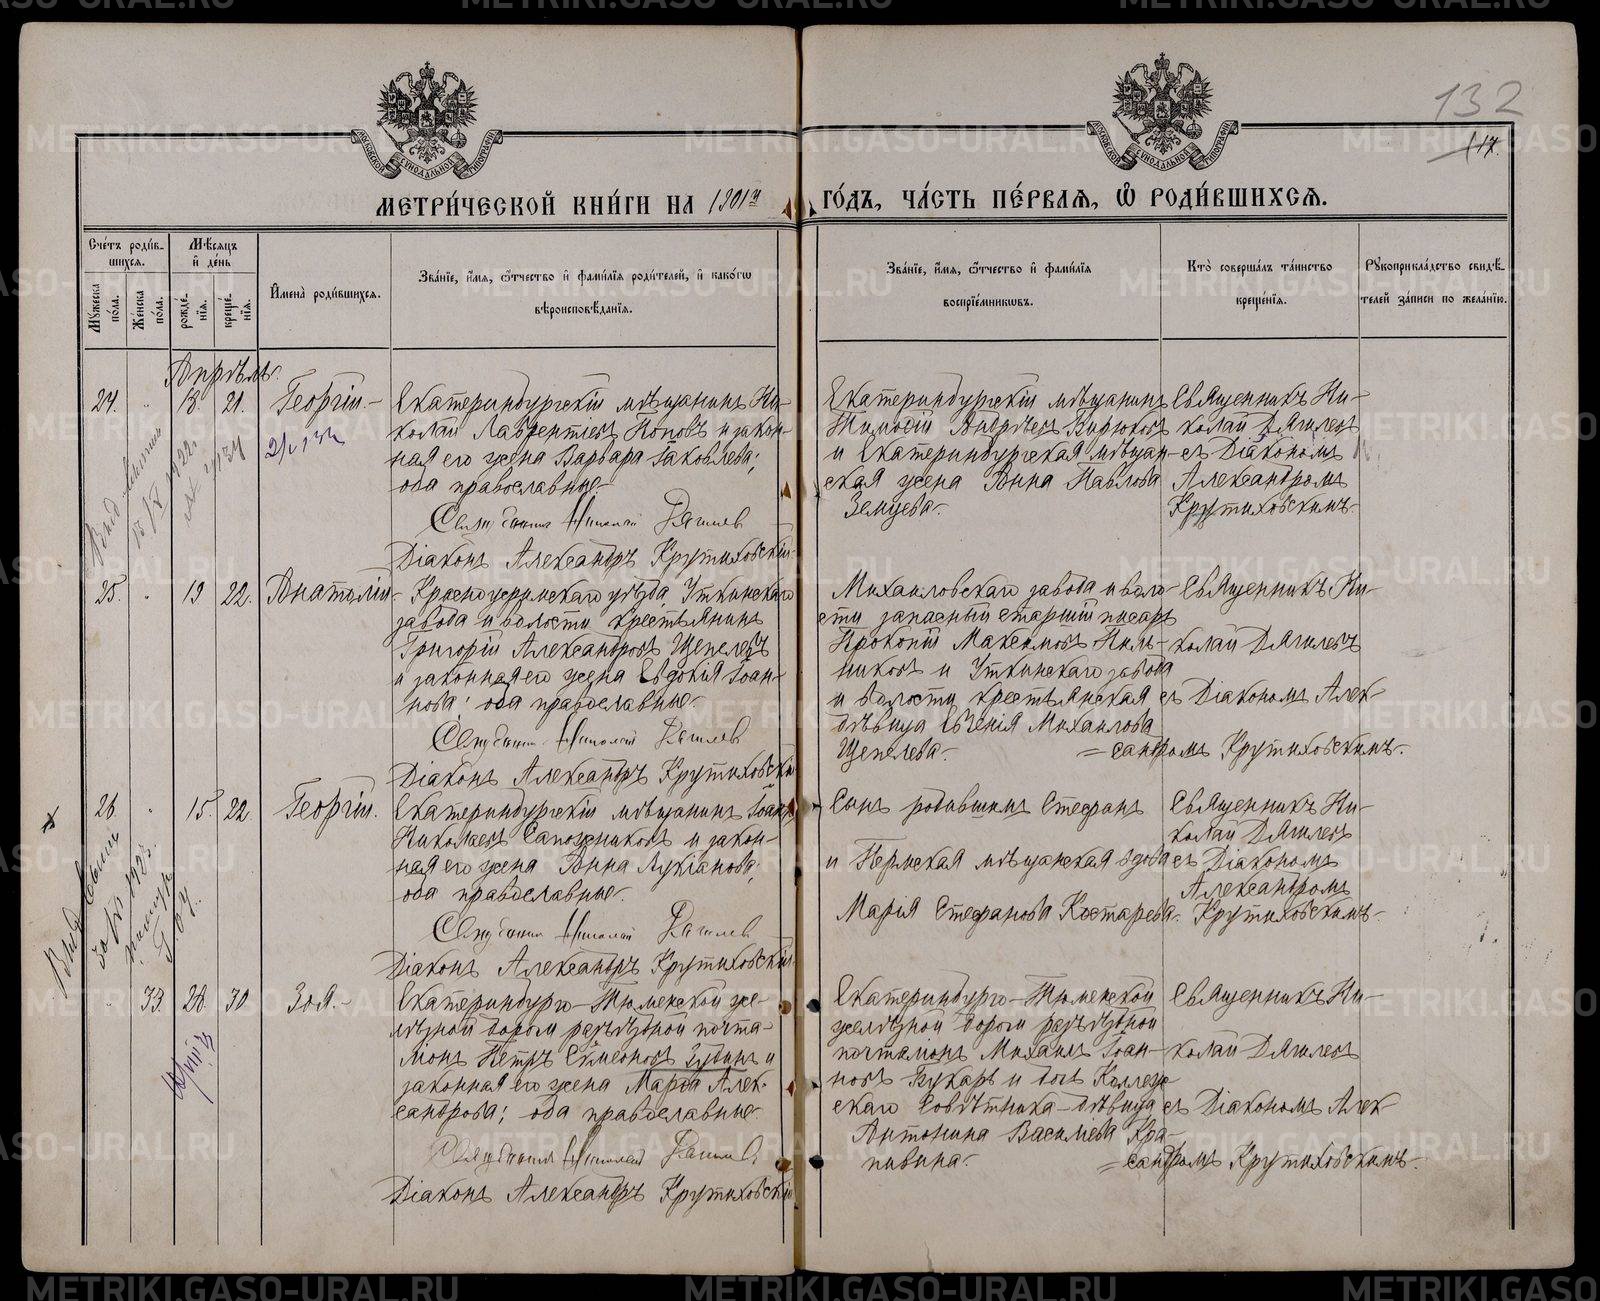 132
117.
МЕТРИ́ЧЕСКОЙ КНИ́ГИ НА 1901й ГО́ДЪ, ЧА́СТЬ ПЕ́РВАѦ, Ѡ҆ РОДИ́ВШИХСѦ.
Счетъ роди́вшихсѧ.
Мꙋжеска по́ла.
Же́нска по́ла.
Мѣ́сѧцъ и҆ де́нь
рожде́нїѧ.
креще́нїѧ.
И҆мена̀ роди́вшихсѧ.
Зва́нїе, и҆́мѧ, ѻ҆́тчество и҆ фами́лїѧ роди́телей, и҆ како́гѡ
вѣроисповѣ́данїѧ.
Зва́нїе, и҆́мѧ, ѻ҆́тчество и҆ фами́лїѧ
воспрїе́мникѡвъ.
Кто̀ соверша́лъ та́инство
креще́нїѧ.
Рꙋкоприкла́дство свидѣ́-
телей за́писи по жела́нїю.
Апрѣль.
24. " 18. 21. Георгій.
Екатеринбургскій мѣщанинъ Ни-
колай Лаврентіевъ Поповъ и закон-
ная его жена Варвара Іаковлева;
оба православные.
Священникъ Николай Дягилевъ
Діаконъ Александръ Крутиховскій.
Екатеринбургскій мѣщанинъ
Тимофій Андреевъ Бирюковъ
и Екатеринбургская мѣщан-
ская жена Анна Павлова
Земцева.
Священникъ Ни-
колай Дягилевъ
съ Діакономъ
Александромъ
Крутиховскимъ.
25. " 19 22. Анатолій.
Красноуфимскаго уѣзда, Уткинскаго
завода и волости крестьянинъ
Григорій Александровъ Щепелевъ
и законная его жена Евдокія Іоан-
нова; оба православные.
Священникъ Николай Дягилевъ
Діаконъ Александръ Крутиховскій
Михайловскаго завода и воло-
сти запасный старшій писарь
Прокопій Максимовъ Пиль-
никовъ и Уткинскаго завода
и волости крестьянская
дѣвица Евгенія Михаилова
Щепелева.
Священникъ Ни-
колай Дягилевъ
съ Діакономъ Алек-
=сандромъ Крутиховскимъ.
26. " 15. 22. Георгій.
Екатеринбургскій мѣщанинъ Іоаннъ
Николаевъ Сапожниковъ и закон-
ная его жена Анна Лукіанова;
оба православные.
Священникъ Николай Дягилевъ
Діаконъ Александръ Крутиховскій.
Сынъ родившимъ Стефанъ
и Пермская мѣщанская вдова
Марія Стефанова Костарева.
Священникъ Ни-
колай Дягилевъ
съ Діакономъ
Александромъ
Крутиховскимъ.
" 33. 28. 30 Зоя.
Екатеринбурго-Тюменской же-
лѣзной дороги разъѣздной почта-
ліонъ Петръ Симеоновъ Зубинъ и
законная его жена Марфа Алек-
сандрова; оба православные
Священникъ Николай Дягилевъ
Діаконъ Александръ Крутиховскій
Екатеринбурго-Тюменской
желѣзной дороги разъѣздной
почталіонъ Михаилъ Іоан-
новъ Бухаръ и дочь Коллеж-
скаго Совѣтника-дѣвица
Антонина Василіева Кра-
пивина.
Священникъ Ни-
колай Дягилевъ
съ Діакономъ Алек-
=сандромъ Крутиховскимъ.
METRIKI.GASO-URAL.RU